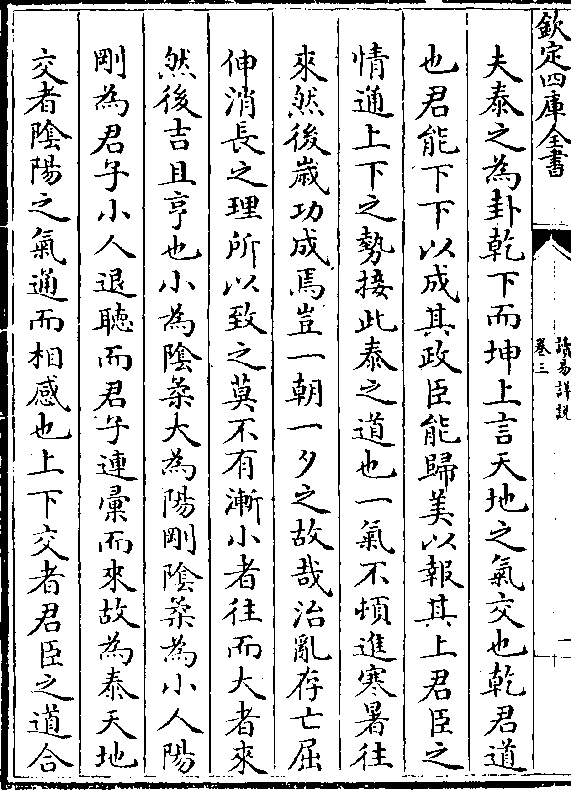 欽定四庫全書
讀易詳說
卷三
夫泰之為卦乾下而坤上言天地之氣交也乾君道
也君能下下以成其政臣能歸美以報其上君臣之
情通上下之勢接此泰之道也一氣不頓進寒暑往
來然後嵗功成焉豈一朝一夕之故哉治亂存亡屈
伸消長之理所以致之莫不有漸小者往而大者來
然後吉且亨也小為陰柔大為陽剛陰柔為小人陽
剛為君子小人退聽而君子連彚而來故為泰天地
交者陰陽之氣通而相感也上下交者君臣之道合